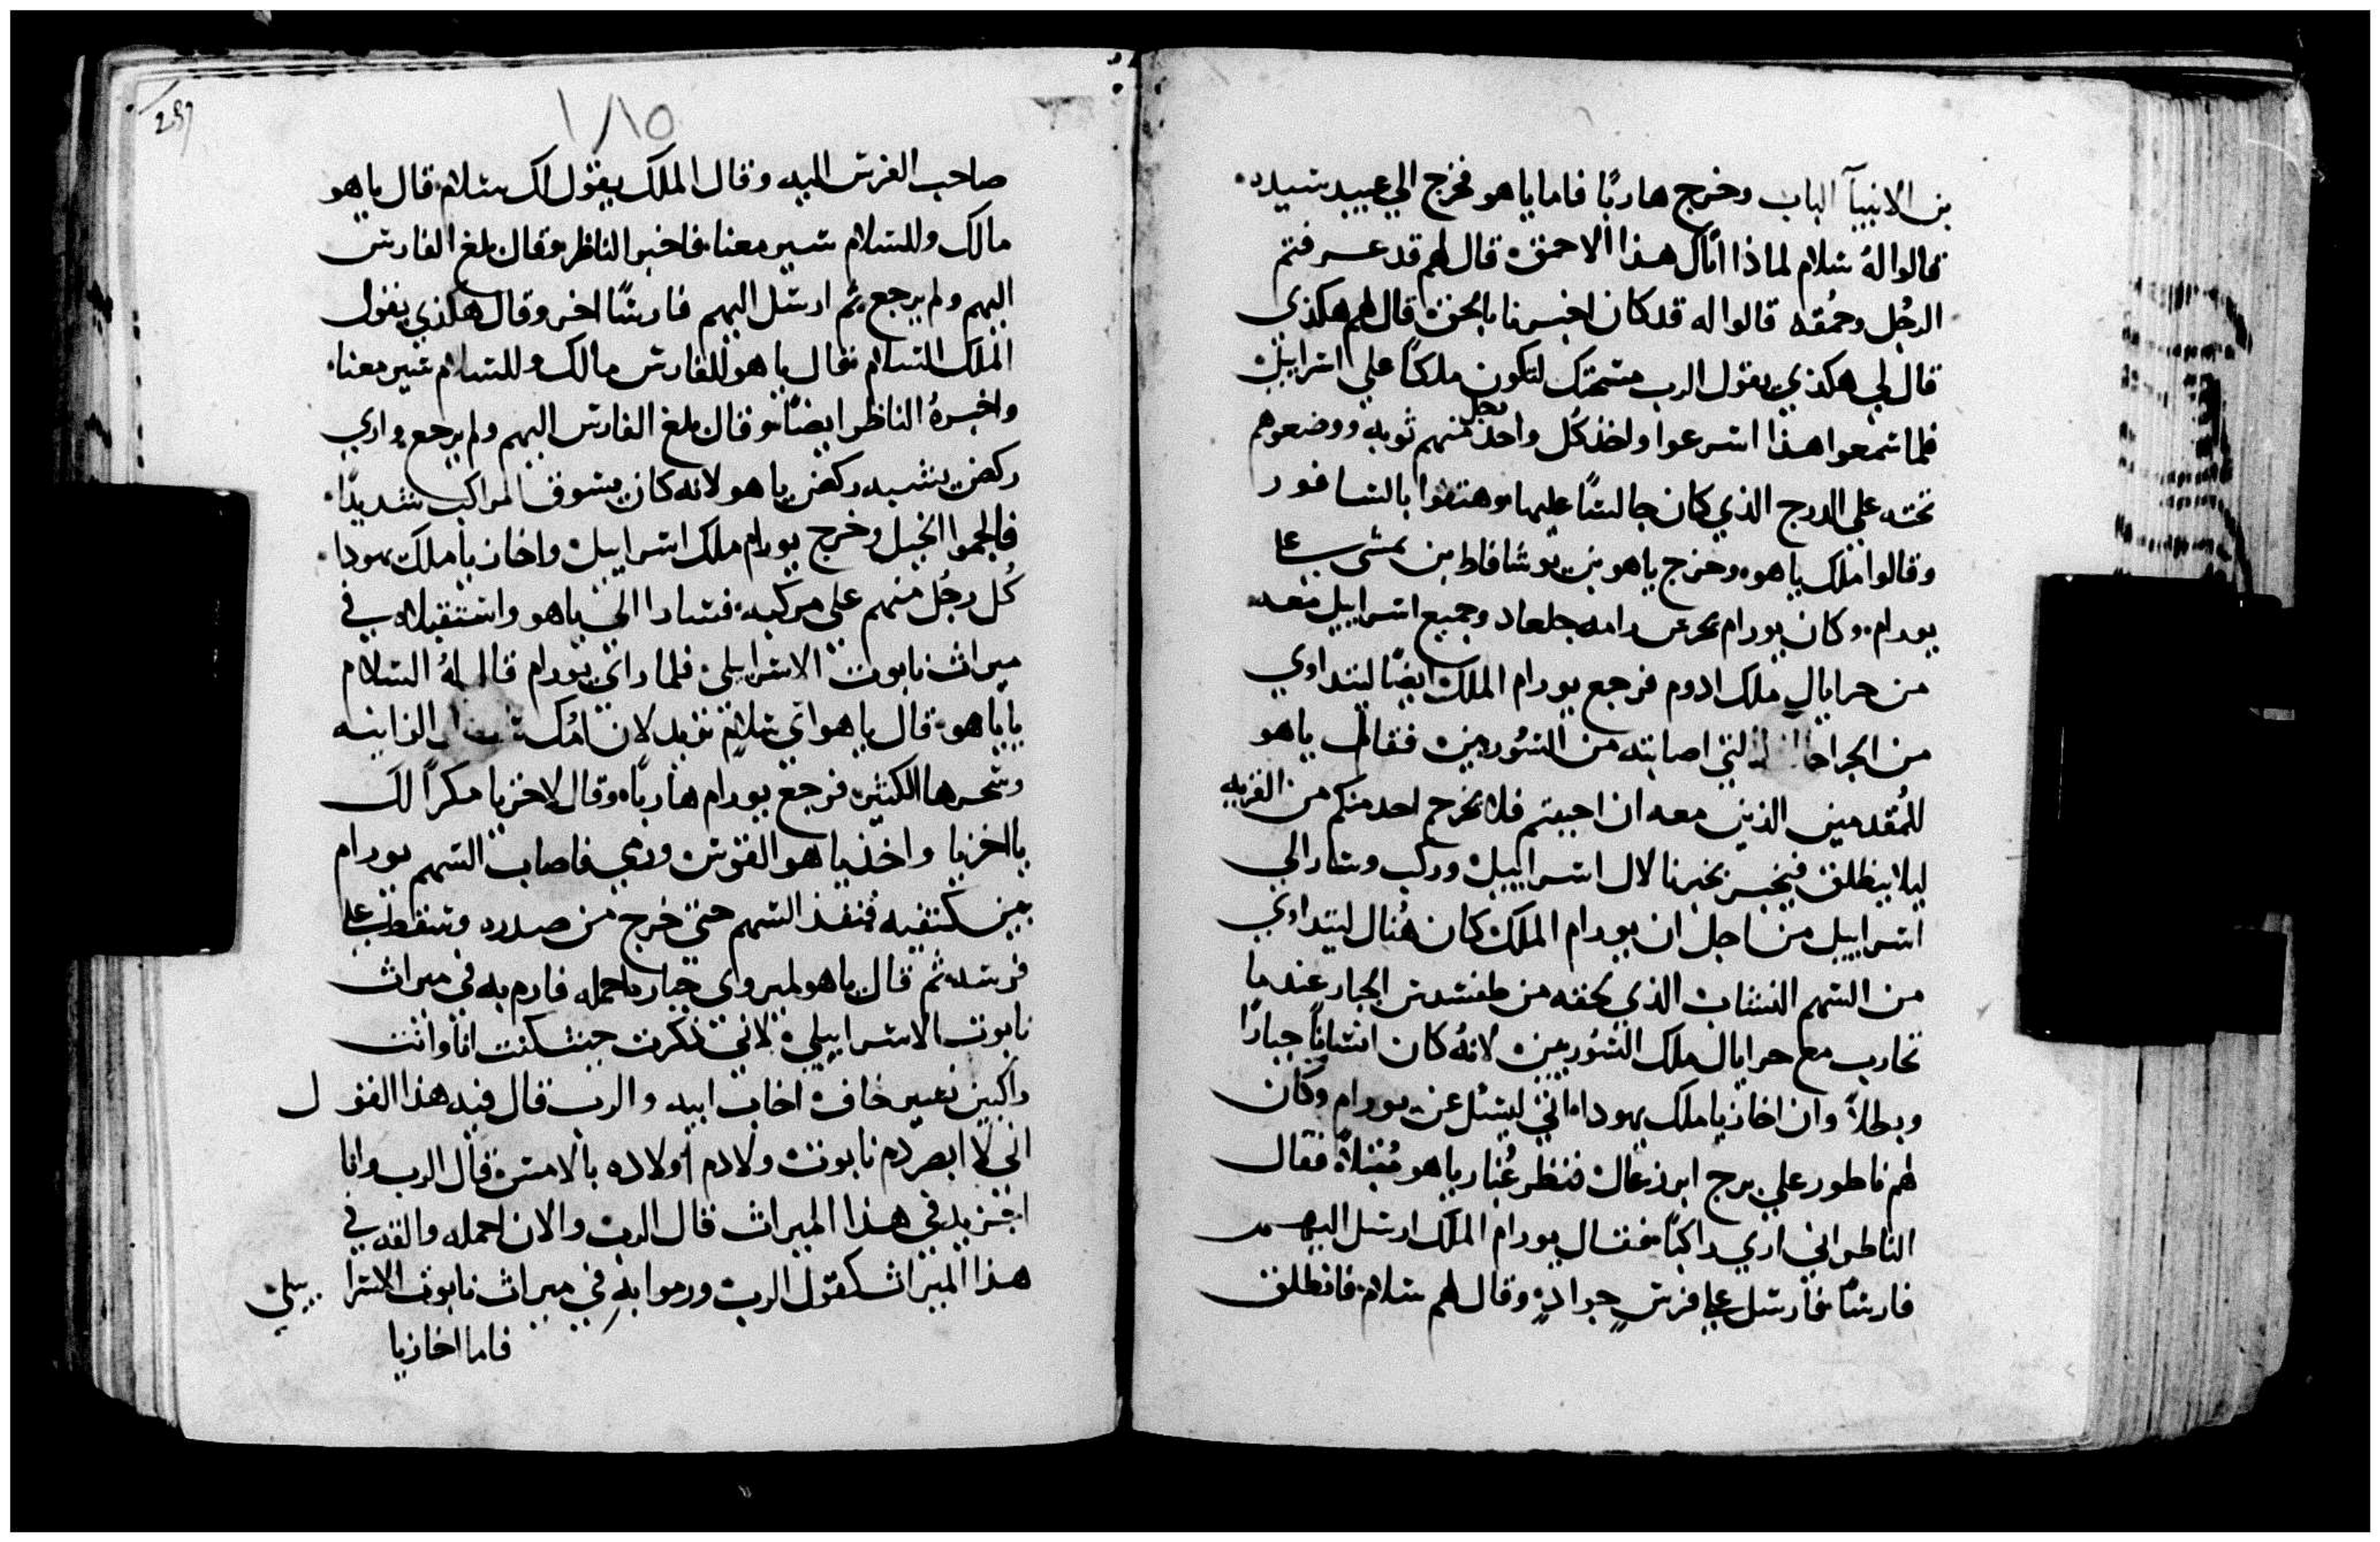 بن الانبيآ الباب وخرج هاربًا فاما ياهو فخرج الي عبيد سيده
قالوا لهُ سلام لماذا اتاك هذا الاحمق قال لهم قد عرفتم
الرجُل وحمُقه قالوا له قد كان اخبرنا بالحق قال لهم هكذي
قال لي هكذي يقول الرب مسحتك لتكون ملكًا علي اسراييل
فلما سمعوا هذا اسرعوا واخذ كُل واحد رجل منهم ثوبه ووضعوهم
تحته علي الدرج الذي كان جالسًا عليها وهتفوا بالسافور
وقالوا ملك ياهو وخرج ياهو بن يوشافاط بن نمشي علي
يورام وكان يورام يحرس رامه جلعاد وجميع اسراييل معه
من حرايال ملك ادوم فرجع يورام الملك ايضًا ليتداوي
من الجراحات التي اصابته من السُوريين فقال ياهو
للمُقدمين الذين معه ان احببتم فلا يخرج احد منكم من القريه
ليلا ينطلق فيخبر بخبرنا لال اسراييل وركب وسار الي
اسراييل من اجل ان يورام الملك كان هُناك ليتداوي
من السهم النشاب الذي لحقه من الجبار عند ما
تحارب مع حرايال ملك السُوريين لانهُ كان انسانًا جبارًا
وبطلاً وان اخازيا ملك يهودا اتي ليسل عن يورام وكان
لهم ناطور علي برج ايرذعال فنظر غُبار ياهو مُقبلاً فقال
الناطر اني اري راكبًا فقال يورام الملك ارسل اليهم
فارسًا فارسل علي فرسٍ جوادٍ وقال لهم سلام فانطلق
257
١٨٥
صاحب الفرس اليه وقال الملك يقول لك سلام قال ياهو
مالك وللسلام سير معنا فاخبر الناظر وقال بلغ الفارس
اليهم ولم يرجع ثم ارسل اليهم فارسًا اخر وقال هكذي يقول
الملك السلام فقال ياهو للفارس مالك وللسلام سير معنا
واخبرهُ الناظر ايضًا وقال بلغ الفارس اليهم ولم يرجع واري
ركض يشبه ركض ياهو لانه كان يسوق المراكب شديدًا
فالجموا الخيل وخرج يورام ملك اسراييل واخازيا ملك يهودا
كُل رجُل منهم علي مركبه فسارا الي ياهو واستقبلاه في
ميراث نابوت الاسرايلي فلما راي يورام قال لهُ السلام
يا ياهو قال ياهو اي سلام تريد لان امُك الزانيه
وسحرها الكثير فرجع يورام هاربًا وقال لاخزيا مكرًا لك
يا اخزيا واخذ ياهو القوس ورمي فاصاب السهم يورام
بين كتفيه فنفذ السهم حتي خرج من صدره وسقط علي
فرسه ثم قال ياهو جباره احمله فارم به في ميراث
نابوت الاسراييلي لاني ذكرت حيث كنت انا وانت
راكبين نسير خاف اخاب ابيه والرب قال فيه هذا القول
اني لا ابصر دم نابوت ولا دم اولاده بالامس قال الرب وانا
اجزيه في هذا الميراث قال الرب والان احمله والقه في
هذا الميراث كقول الرب ورموا به في ميراث نابوت الاسراييلي
فاما اخازيا